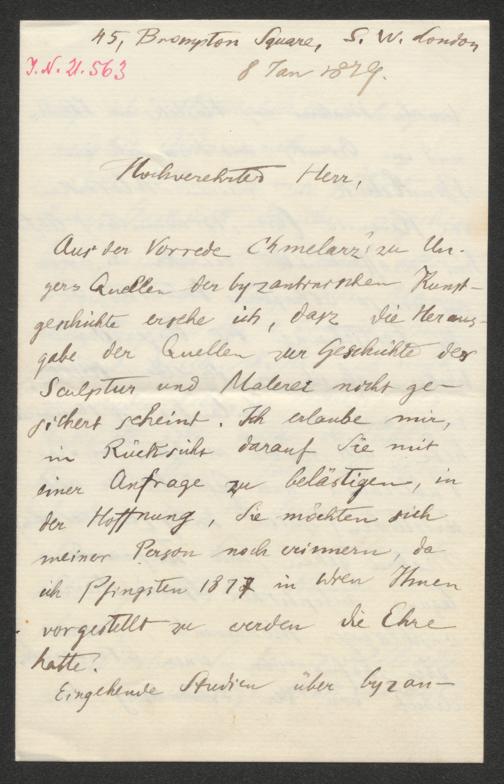 45, Brompton Square, S. W. London
J.N. 21.563
8 Jan 1879.
Hochverehrter Herr,
Aus der Vorrede Chmelarz's zu Un-
gers Quellen der byzantinischen Kunst-
geschichte ersehe ich, dasz die Heraus-
gabe der Quellen zur Geschichte der
Sculptur und Malerei nicht ge-
sichert scheint. Ich erlaube mir,
in Rücksicht darauf Sie mit
einer Anfrage zu belästigen, in
der Hoffnung, Sie möchten sich
meiner Person noch erinnern, da
ich Pfingsten 1877 in Wien Ihnen
vorgestellt zu werden die Ehre
hatte.
Eingehende Studien über byzan-